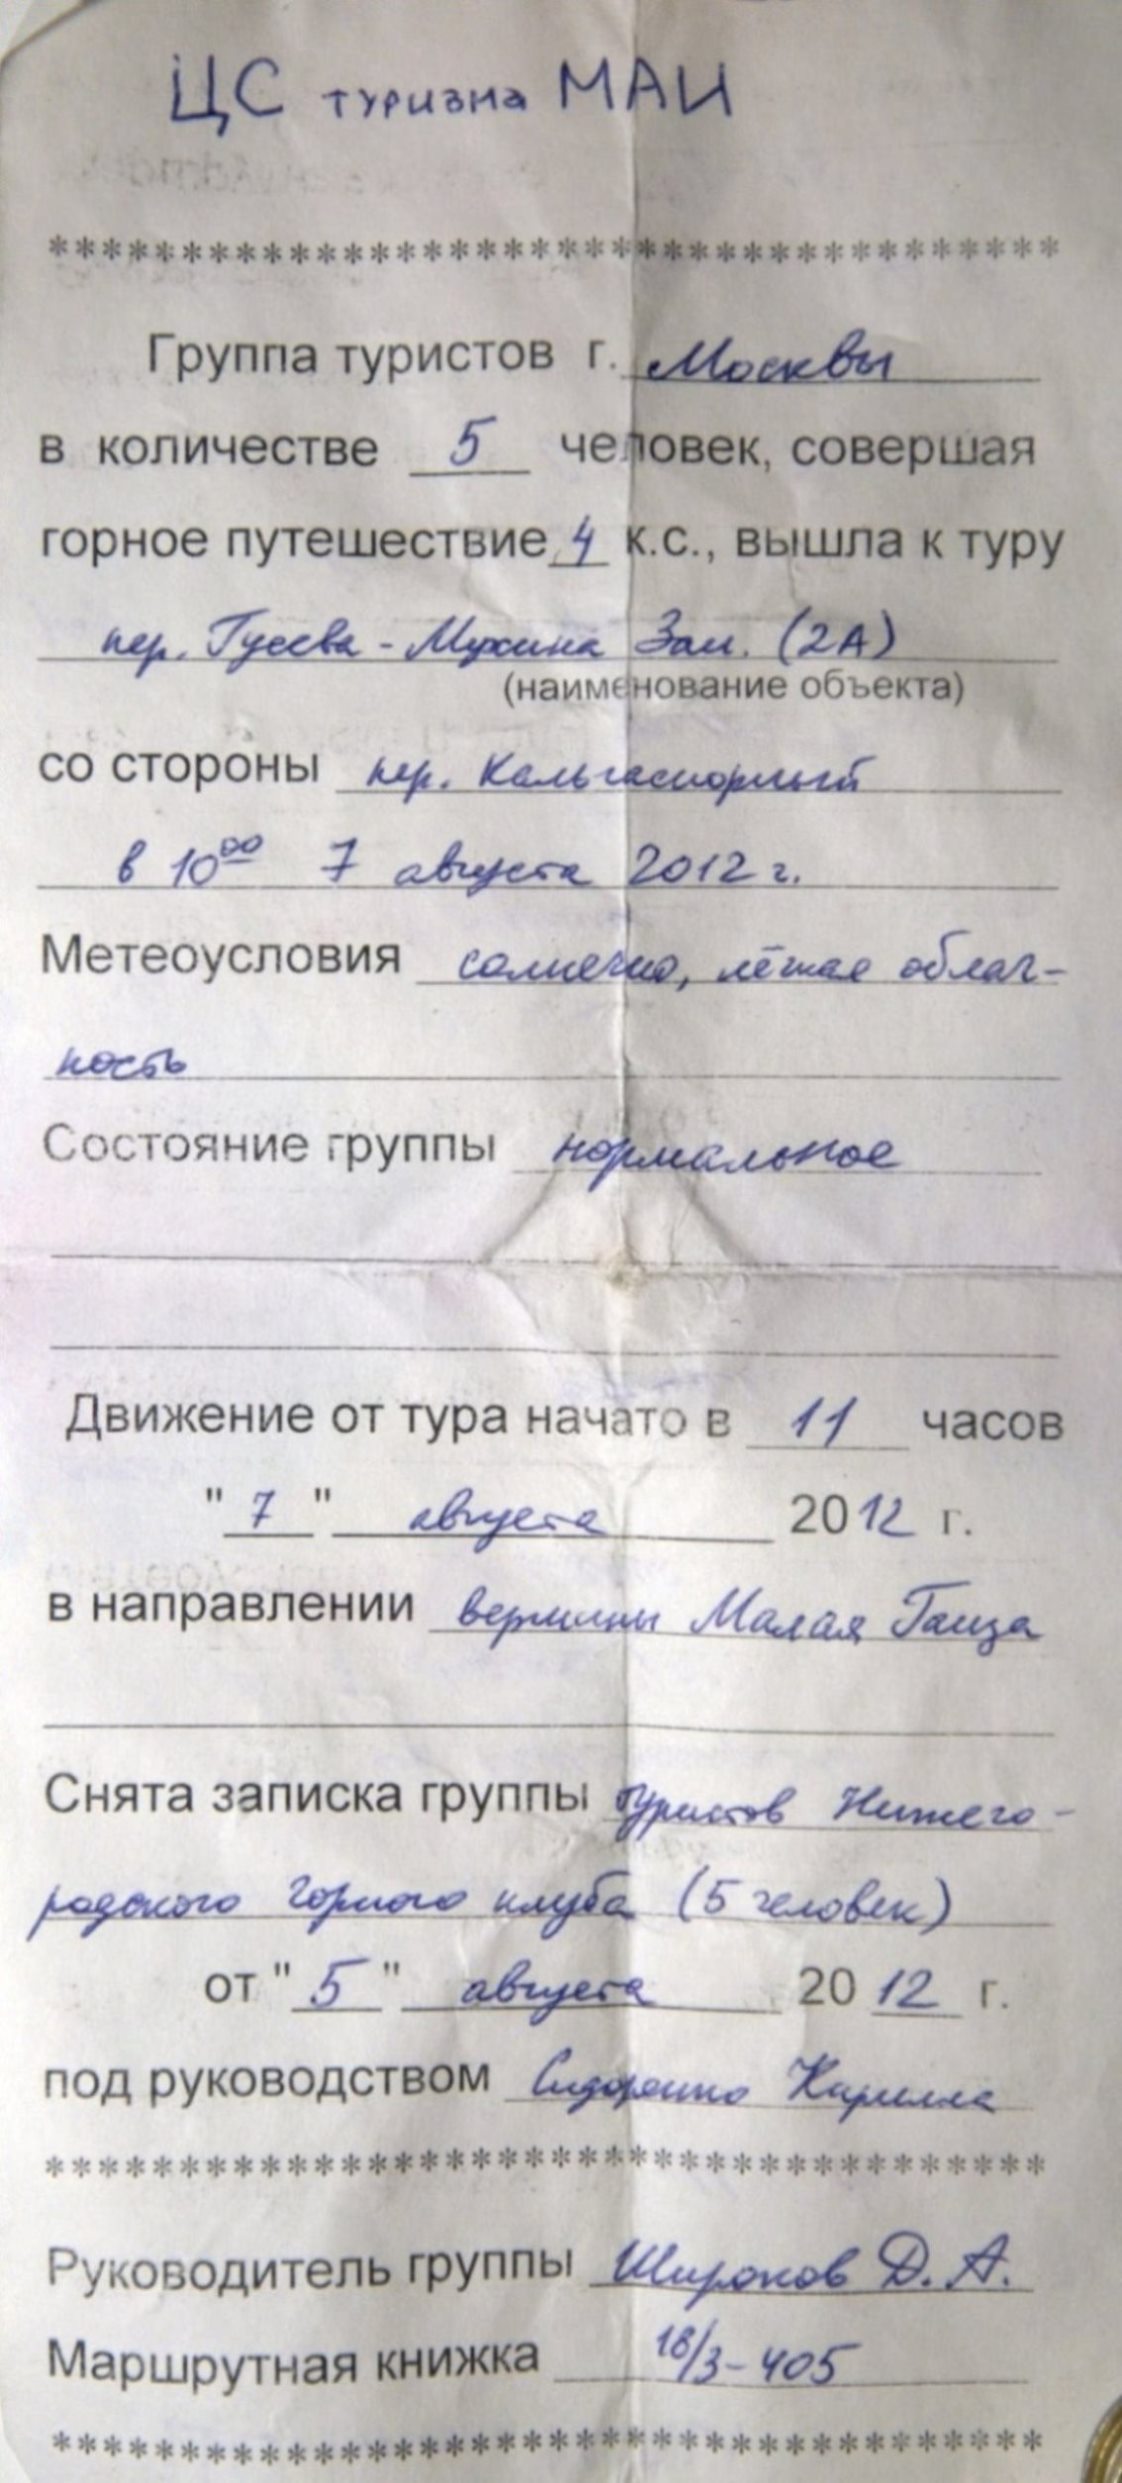 ЦС туризма МАИ
**************************************
Группа туристов г. Москвы
в количестве 5 человек, совершая
горное путешествие 4 к.с., вышла к туру
пер. Гусева - Мухина Зап. (2А)
(наименование объекта)
со стороны пер. Кальгаспорный
в 10⁰⁰ 7 августа 2012 г.
Метеоусловия солнечно, лёгкая облач-
ность
Состояние группы нормальное
Движение от тура начато в 11 часов
"7" августа 2012 г.
в направлении вершины Малая Ганза
Снята записка группы туристов Нижего-
родского горного клуба (5 человек)
от "5" августа 2012 г.
под руководством Сидоренко Кирилла
**************************************
Руководитель группы Широков Д. А.
Маршрутная книжка 18/3-405
**************************************